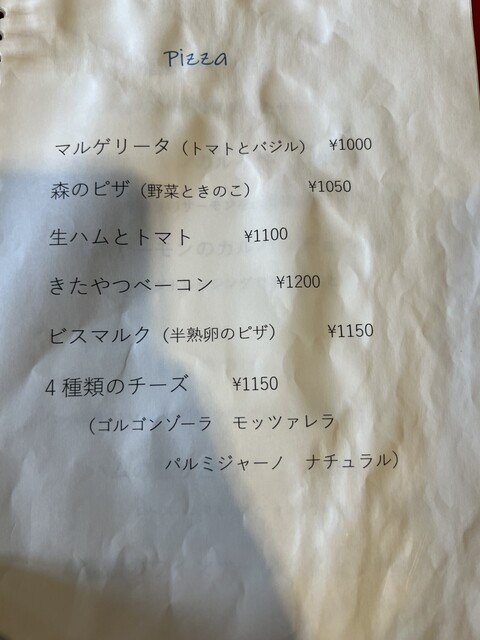 Pizza
マルゲリータ（トマトとバジル） ¥1000
森のピザ（野菜ときのこ） ¥1050
生ハムとトマト ¥1100
きたやつベーコン ¥1200
ビスマルク（半熟卵のピザ） ¥1150
4種類のチーズ ¥1150
（ゴルゴンゾーラ モッツァレラ
パルミジャーノ ナチュラル）